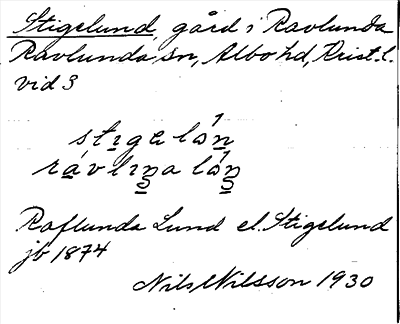 Stigslund, gård i Ravlunda
Ravlunda sn, Albo hd, Krist. l.
vid 3
Raflunda Lund el. Stigslund
jb 1874
Nils Nilsson 1930